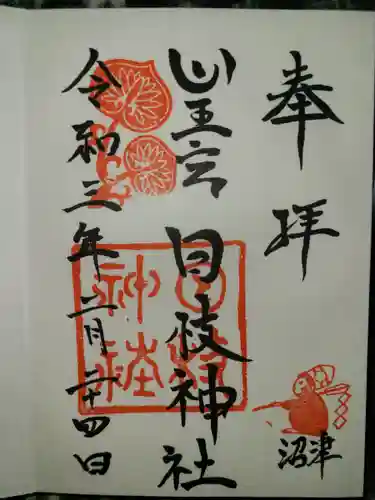 奉拝
山王宮 日枝神社
令和三年二月二十四日
日枝神社
沼津